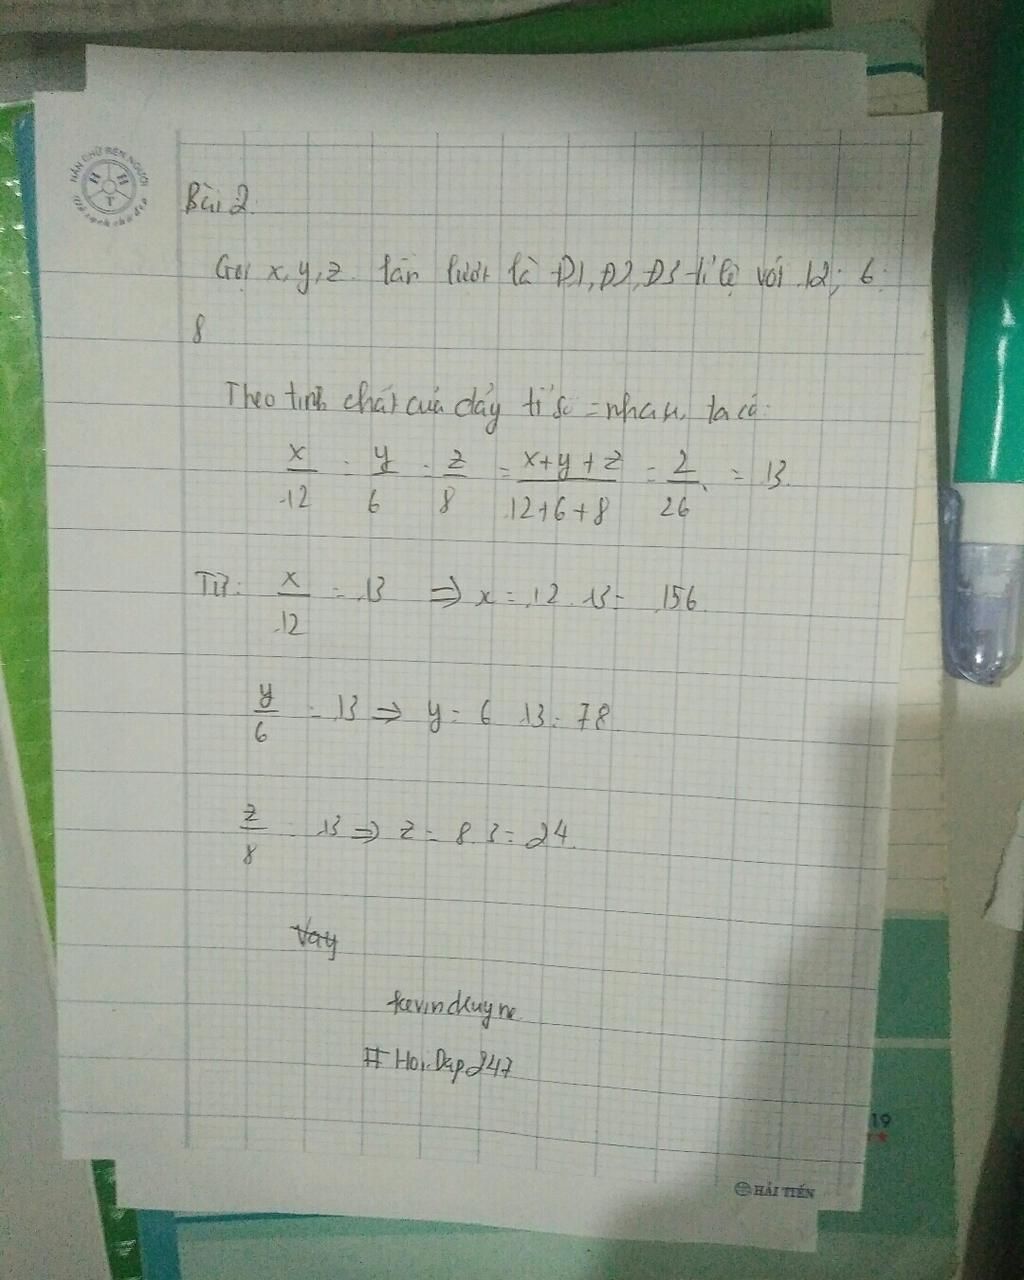 NẮN CHỮ RÈN NGƯỜI
H H T
Bài 2.
Gọi x, y, z lần lượt là Đ1, Đ2, Đ3 tỉ lệ với 12; 6;
8
Theo tính chất của dãy tỉ số = nhau, ta có:
x/12 = y/6 = z/8 = x+y+z/12+6+8 = 2/26 = 13.
Từ: x/12 = 13 => x = 12.13 = 156
y/6 = 13 => y = 6.13 = 78
z/8 = 13 => z = 8.3 = 24.
Vay
kevinduyne
# HoiDap247
19
HẢI TIẾN